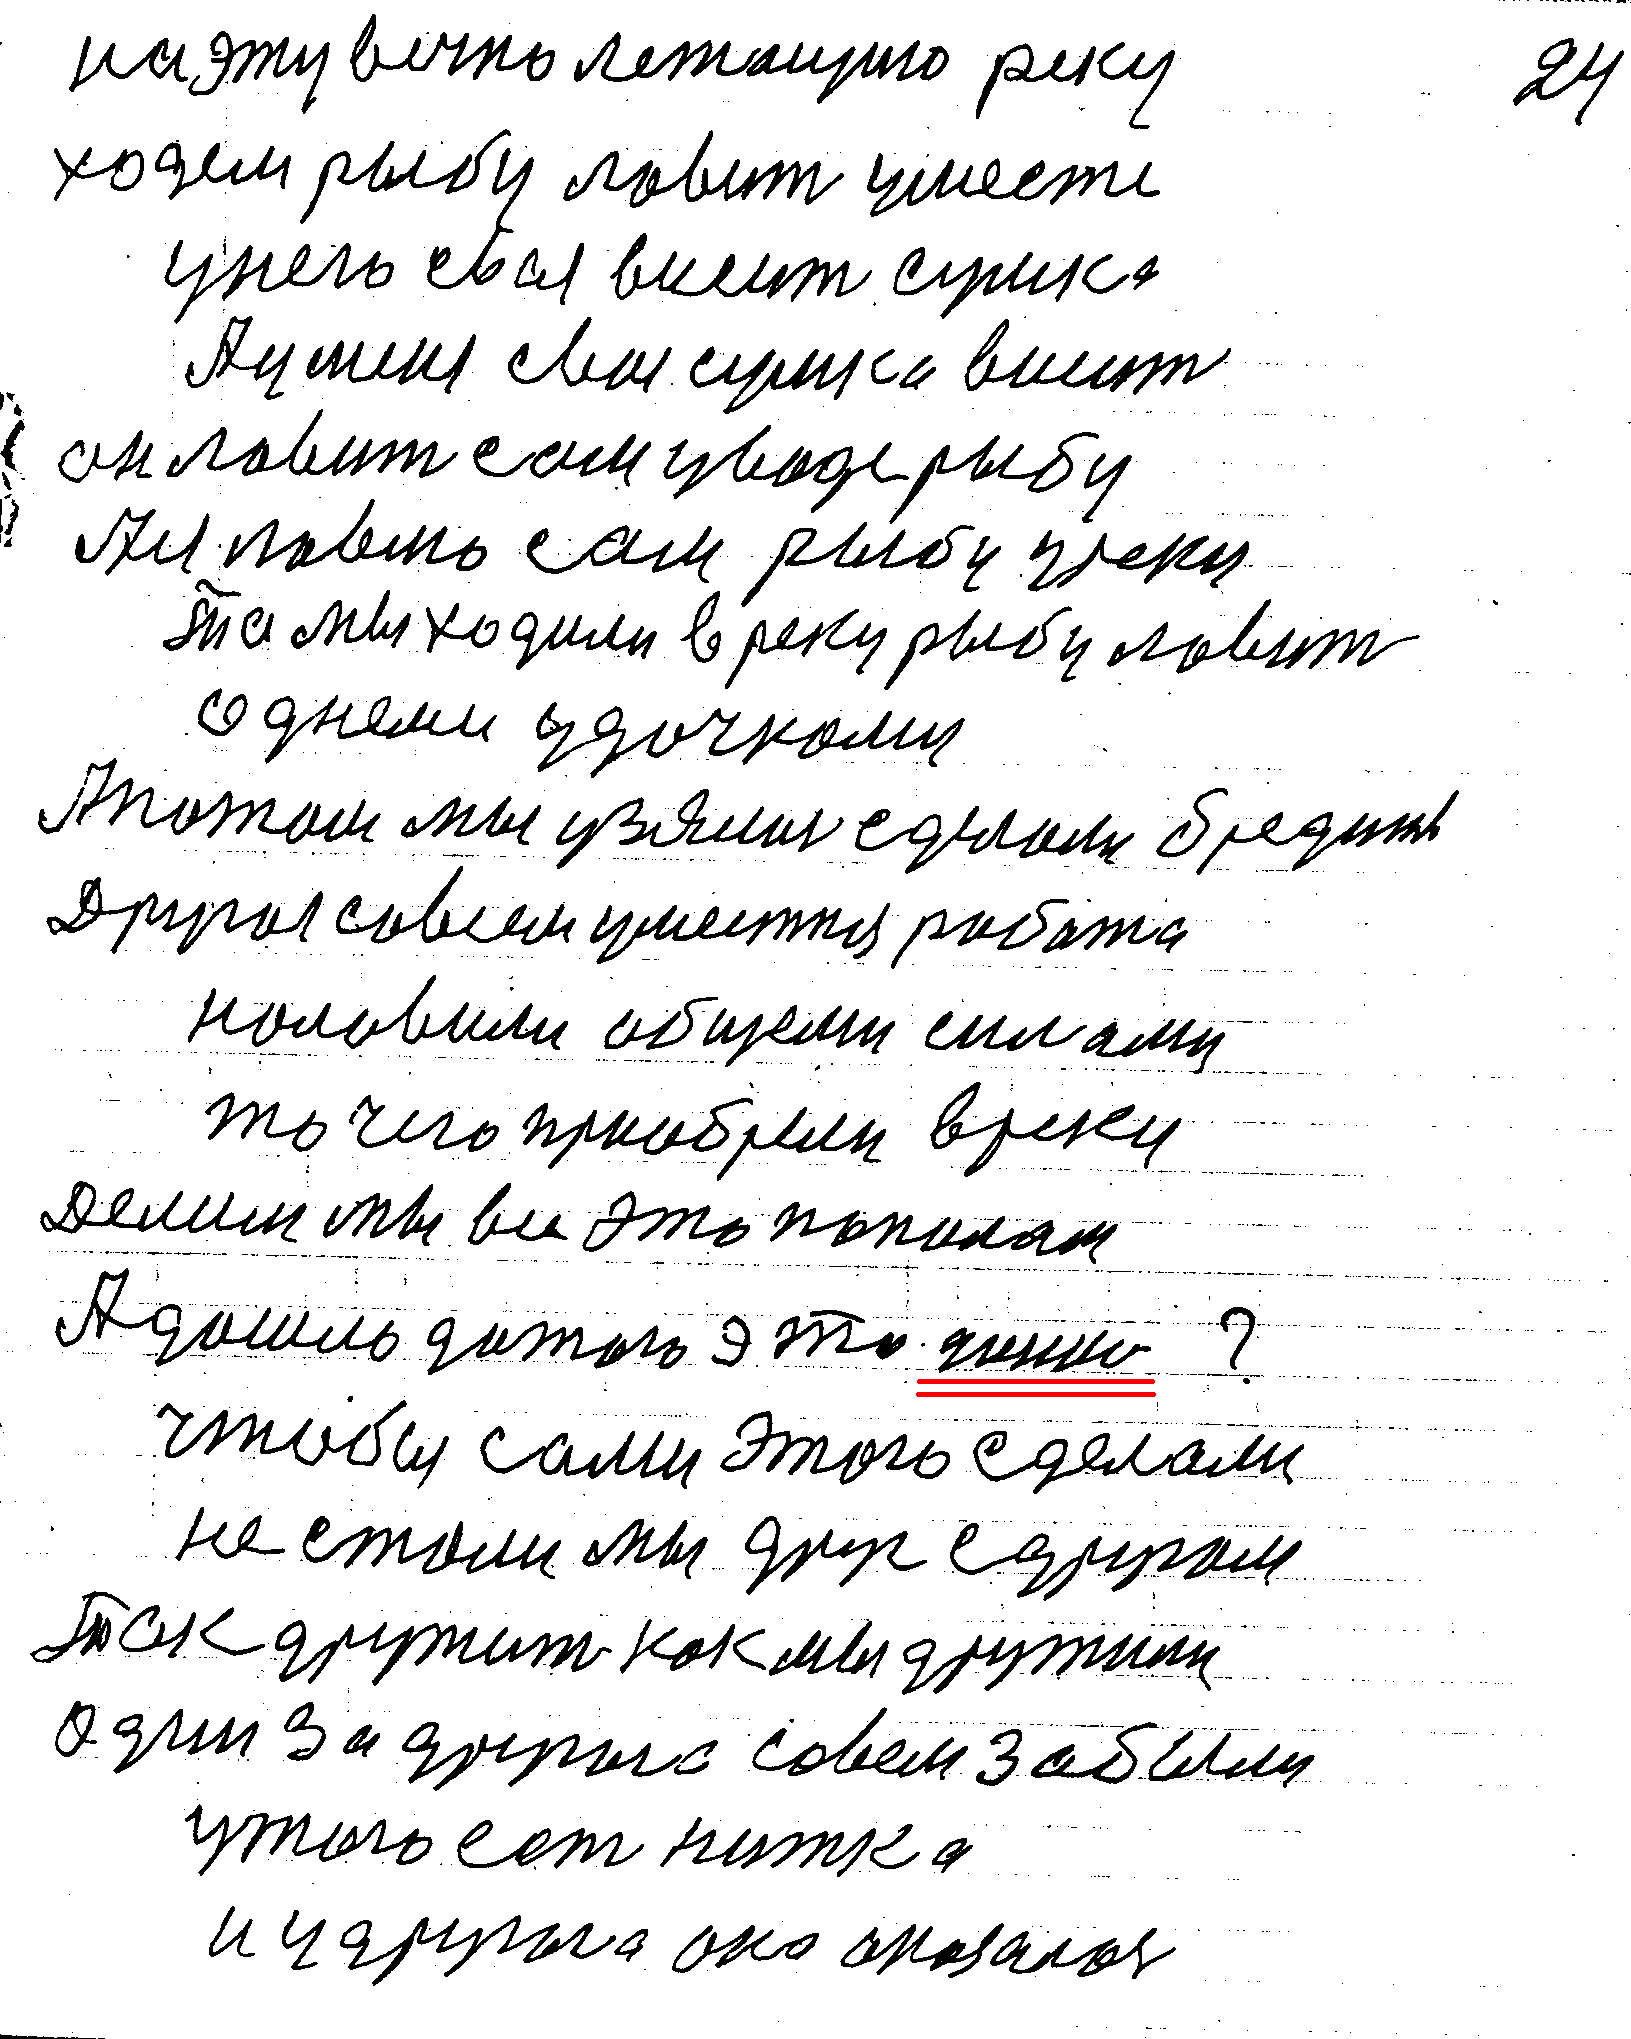 на эту вечно летающую реку 24
ходем рыбу ловит умести
у него своя висит сумка
А у меня своя сумка висит
он ловит сам у воде рыбу
А я ловлю сам рыбу у реки
та мы ходили в реку рыбу ловит
однеми удочками
А потом мы узяли сделали брединь
Другая совсем уместная работа
наловили общеми силами
то чего приобрели в реки
Делим мы все это пополам
А дошло до того это
?
чтобы сами этого сделали
не стали мы друг с другом
так дружит как мы дружили
один за другога совем забыли
у того сет нитка
и у другога она оказалос